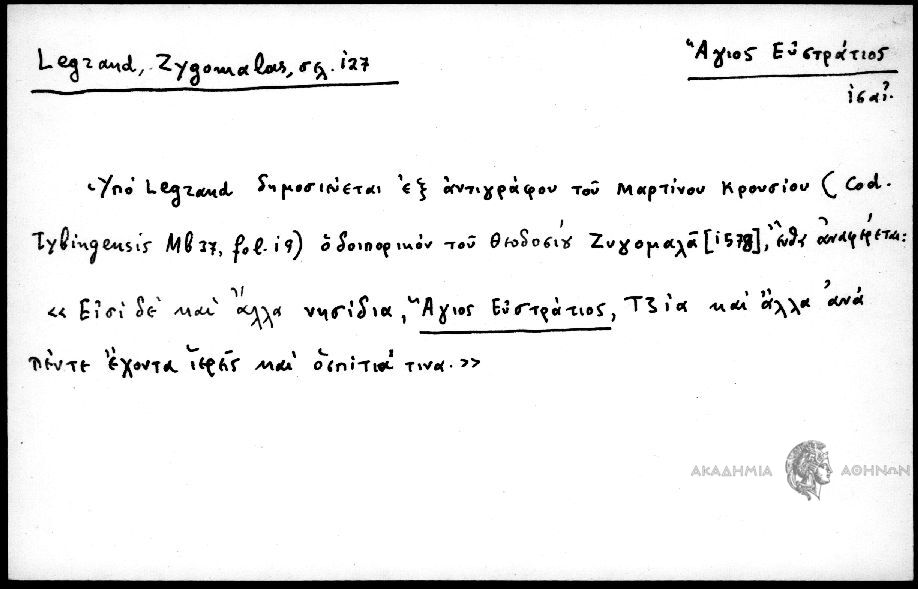 Legrand, Zygomalas, σελ. 127
Ἅγιος Εὐστράτιος
Ὑπό Legrand δημοσιεύεται ἐξ ἀντιγράφου τοῦ Μαρτίνου Κρουσίου (Cod.
Tybingensis Mb 37, fol. 19) ὁδοιπορικόν τοῦ Θεοδοσίου Ζυγομαλᾶ [1578], ἔνθα ἀναφέρεται:
«Εἰσί δέ καί ἄλλα νησίδια, Ἅγιος Εὐστράτιος, Τζία καί ἄλλα ἀνά
πέντε ἔχοντα ἱερεῖς καί ὁσπίτιά τινα.»
ΑΚΑΔΗΜΙΑ ΑΘΗΝΩΝ